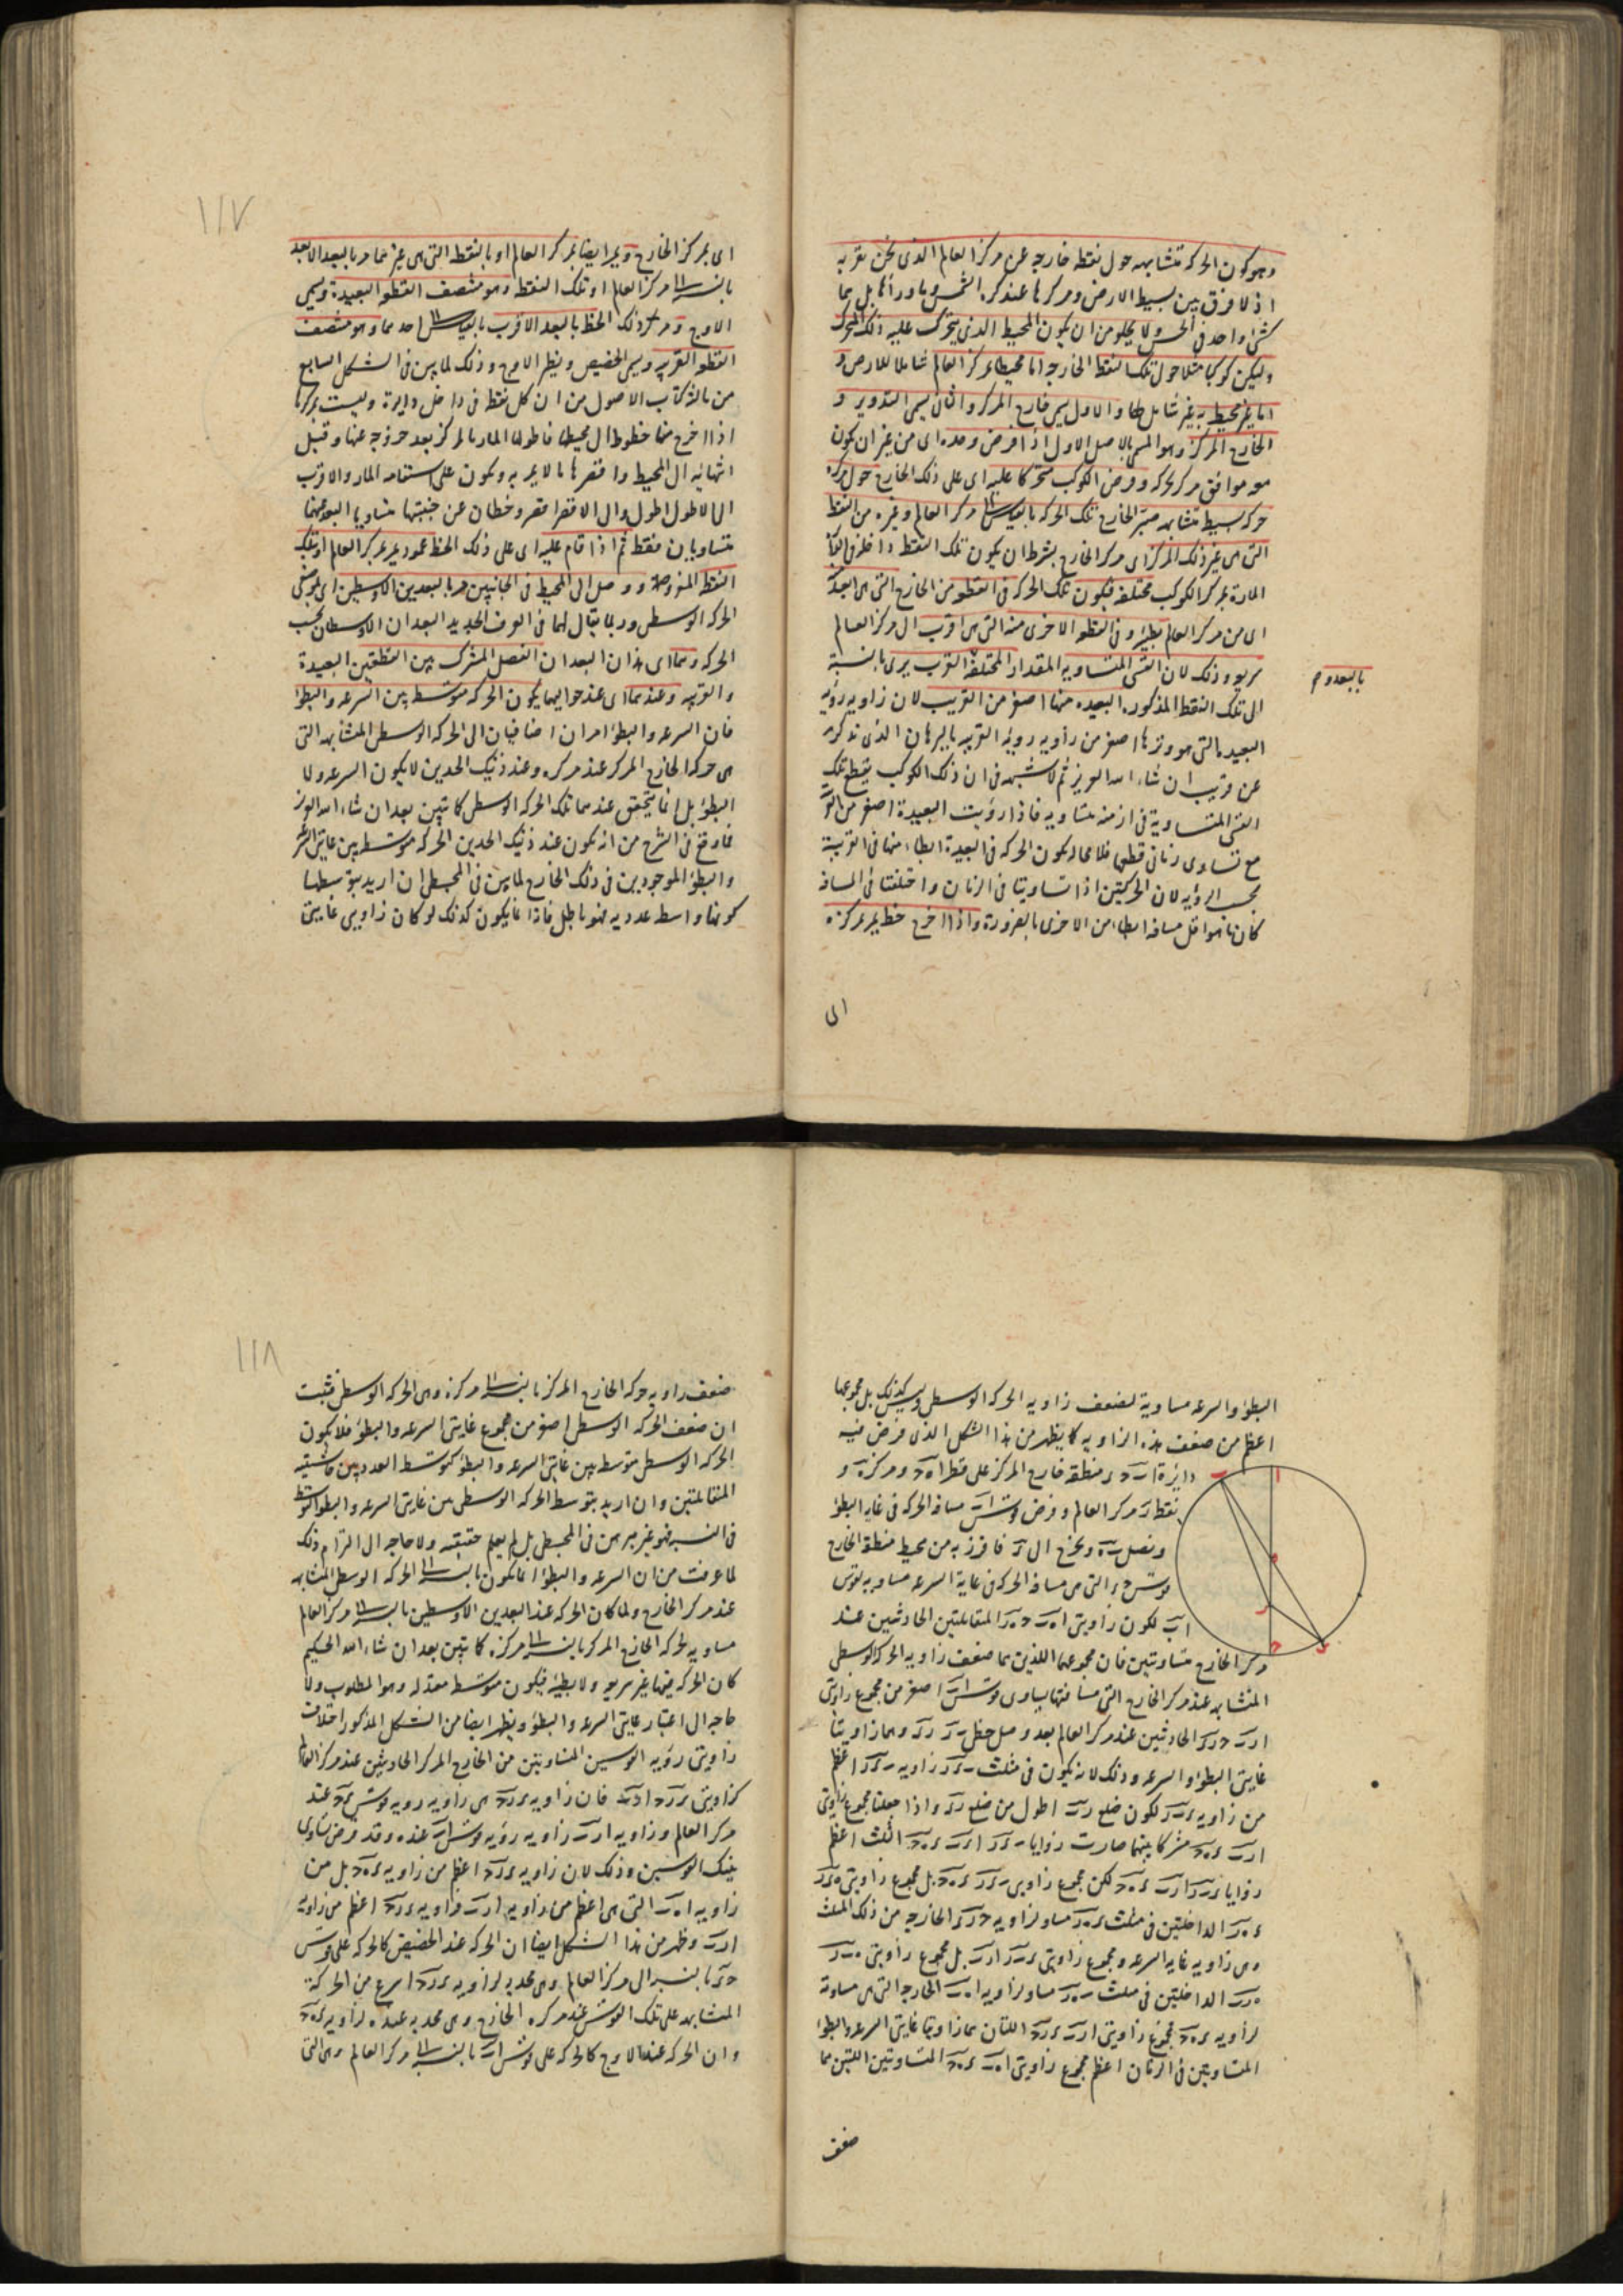 وهو كون الحركة متشابهة حول نقطة خارجة عن مركز العالم الذي نحن بقربه
اذ لا فرق بين بسيط الارض ومركزها عند كرة الشمس وما ورائها بل هما
كشئ واحد في الحس ولا يخلو من ان يكون المحيط الذي يتحرك عليه ذلك المتحرك
وليكن كوكبا مثلا حول تلك النقطة الخارجة اما محيطا بمركز العالم شاملا للارض و
اما غير محيط به غير شامل لها والاول يسمى خارج المركز والثاني يسمى التدوير و
الخارج المركز وهو المسمى بالاصل الاول اذا فرض وحده اى من غير ان يكون
معه موافق مركز يحركه وفرض الكوكب متحركا عليه اى على ذلك الخارج حول مركزه
حركة بسيطة متشابهة صير الخارج تلك الحركة بالقياس الى مركز العالم وغيره من النقط
التي هى غير ذلك المركز اى مركز الخارج بشرط ان يكون تلك النقطة داخل
المارة بمركز الكوكب مختلفة فيكون تلك الحركة في القطعة من الخارج التي هى ابعد
اى من مركز العالم بطيئة وفي القطعة الاخرى منه التي هى اقرب الى مركز العالم
سريعة وذلك لان القسى المتساوية المقدار المختلفة القرب يرى بالنسبة
بالبعد و م
الى تلك النقطة المذكورة البعيدة منها اصغر من القريبة لان زاوية رؤية
البعيدة التي هو وترها اصغر من زاوية روية القريبة بالبرهان الذي نذكره
عن قريب ان شاء الله العزيز ثم لا شبهة في ان ذلك الكوكب يقطع تلك
القسى المتساوية في ازمنة متساوية فاذا رؤيت البعيدة اصغر من
مع تساوى زمانى قطعها فلا محالة يكون الحركة في البعيدة ابطاء منها في القريبة
بحسب الرؤية لان الحركتين اذا تساويتا في الزمان واختلفتا في المسافة
كان ما هو اقل مسافة ابطا من الاخرى بالضرورة واذا اخرج خط يمر بمركزه
الى
١١٧
اى بمركز الخارج ويمر ايضا بمركز العالم او بالنقطة التي هى غيرهما مر بالبعد الابعد
بالنسبة الى مركز العالم او تلك النقطة وهو منتصف القطعة البعيدة ويسمى
الاوج ومر كذلك الخط بالبعد الاقرب بالقياس الى احدهما وهو منتصف
القطعة القريبة ويسمى الحضيض ونظير الاوج وذلك لما بين في الشكل السابع
من ثالثة كتاب الاصول من ان كل نقطة في داخل دايرة وليست بمركزها
اذا اخرج منها خطوط الى محيطها فاطولها المار بالمركز بعد خروجه عنها وقبل
انتهائه الى المحيط واقصرها ما لا يمر به ويكون على استقامة المار والاقرب
الى الاطول اطول والى الاقصر اقصر وخطان عن جنبتيها متساويا البعد عنهما
متساويان فقط ثم اذا قام عليه اى على ذلك الخط عمود يمر بمركز العالم او بتلك
النقطة المفروضة ووصل الى المحيط في الجانبين مر بالبعدين الاوسطين اى
الحركة الوسطى وربما يقال لهما في العرف الجديد البعدان الاوسطان بحسب
الحركة وهما اى هذان البعدان الفصل المشترك بين القطعتين البعيدة
والقريبة وعندهما اى عند حواليهما يكون الحركة متوسطة بين السرعة والبطؤ
فان السرعة والبطؤ امران اضافيان الى الحركة الوسطى المتشابهة التي
هى حركة الخارج المركز عند مركزه وعند ذينك الحدين لا يكون السرعة ولا
البطؤ بل انما يتحقق عندهما تلك الحركة الوسطى كما تبين بعد ان شاء الله العزيز
فما وقع في الشرح من انه يكون عند ذينك الحدين الحركة متوسطة بين غايتى السرعة
والبطؤ الموجودين في ذلك الخارج لما بين في المجسطى ان اريد بتوسطها
كونها واسطة عددية فهو باطل فاذا انما يكون كذلك لو كان زاويتى غايتى
البطؤ والسرعة مساوية لضعف زاوية الحركة الوسطى وليس كذلك بل مجموعهما
اعظم من ضعف هذه الزاوية كما يظهر من هذا الشكل الذي فرض فيه
دايرة ا ب ج ء منطقة خارج المركز على قطر ا ه ج ومركزه ه و
نقطة ر مركز العالم وفرض قوس ا ب مسافة الحركة في غاية البطؤ
ونصل ب ه ونخرج الى ء فافرز به من محيط منطقة الخارج
قوس ج ء التي هى مسافة الحركة في غاية السرعة مساوية لقوس
ا ب لكون زاويتى ا ه ب ج ه ء المتقابلتين الحادثتين عند
مركز الخارج متساويتين فان مجموعهما اللذين هما ضعف زاوية الحركة الوسطى
المتشابهة عند مركز الخارج التي مسافتها يساوى قوس ا ب اصغر من مجموع زاويتى
ا ر ب ج ر ء الحادثتين عند مركز العالم بعد وصل خطى ب ر ر ء وهما زاويتا
غايتى البطؤ والسرعة وذلك لانه يكون في مثلث ب ء ر زاوية ب ء ر اعظم
من زاوية ء ب ر لكون ضلع ر ب اطول من ضلع ر ء واذا جعلنا مجموع زاويتى
ا ر ب ء ه ج مشتركا بينهما صارت زوايا ب ء ر ا ر ب ء ه ج الثلث اعظم
زوايا ء ب ر ا ر ب ء ه ج لكن مجموع زاويتى ب ء ر ء ه ج بل مجموع زاويتى ه ء ر
ء ه ر الداخلتين في مثلث ء ه ر مساو لزاوية ج ر ء الخارجة من ذلك المثلث
وهى زاوية غاية السرعة ومجموع زاويتى ء ب ر ا ر ب بل مجموع زاويتى ه ب ر
ه ر ب الداخلتين في مثلث ب ه ر مساو لزاوية ا ه ب الخارجة التي هى مساوية
لزاوية ء ه ج فمجموع زاويتى ا ر ب ء ر ج اللتان هما زاويتا غايتى السرعة والبطؤ
المتساويتين في الزمان اعظم مجموع زاويتى ا ه ب ء ه ج المتساويتين اللتين هما
ضعف
ا
ب
ه
ر
ج
ء
١١٨
ضعف زاوية حركة الخارج المركز بالنسبة الى مركزه وهى الحركة الوسطى فثبت
ان ضعف الحركة الوسطى اصغر من مجموع غايتى السرعة والبطؤ فلا يكون
الحركة الوسطى متوسطة بين غايتى السرعة والبطؤ كتوسط العدد بين حاشيتيه
المتقابلتين وان اريد بتوسط الحركة الوسطى بين غايتى السرعة والبطؤ التوسط
في النسبة فهو غير مبرهن في المجسطى بل لم يعلم حقيقته ولا حاجة الى التزام ذلك
لما عرفت من ان السرعة والبطؤ انما يكون بالنسبة الى الحركة الوسطى المتشابهة
عند مركز الخارج ولما كان الحركة عند البعدين الاوسطين بالنسبة الى مركز العالم
مساوية لحركة الخارج المركز بالنسبة الى مركزه كما تبين بعد ان شاء الله الحكيم
كان الحركة فيها غير سريعة ولا بطيئة فيكون متوسطة معتدلة وهو المطلوب ولا
حاجة الى اعتبار غايتى السرعة والبطؤ ويظهر ايضا من الشكل المذكور اختلاف
زاويتى رؤية القوسين المتساويتين من الخارج المركز الحادثتين عند مركز العالم
كزاويتى ء ر ج ا ر ب فان زاوية ء ر ج هى زاوية روية قوس ء ج عند
مركز العالم وزاوية ا ر ب زاوية رؤية قوس ا ب عنده وقد فرض تساوى
تينك القوسين وذلك لان زاوية ء ر ج اعظم من زاوية ء ه ج بل من
زاوية ا ه ب التي هى اعظم من زاوية ا ر ب فزاوية ء ر ج اعظم من زاوية
ا ر ب وظهر من هذا الشكل ايضا ان الحركة عند الحضيض كالحركة على قوس
ج ء بالنسبة الى مركز العالم وهى محدبة لزاوية ء ر ج اسرع من الحركة
المتشابهة على تلك القوس عند مركزه الخارج وهى محدبة عنده لزاوية ء ه ج
وان الحركة عند الاوج كالحركة على قوس ا ب بالنسبة الى مركز العالم وهى التي